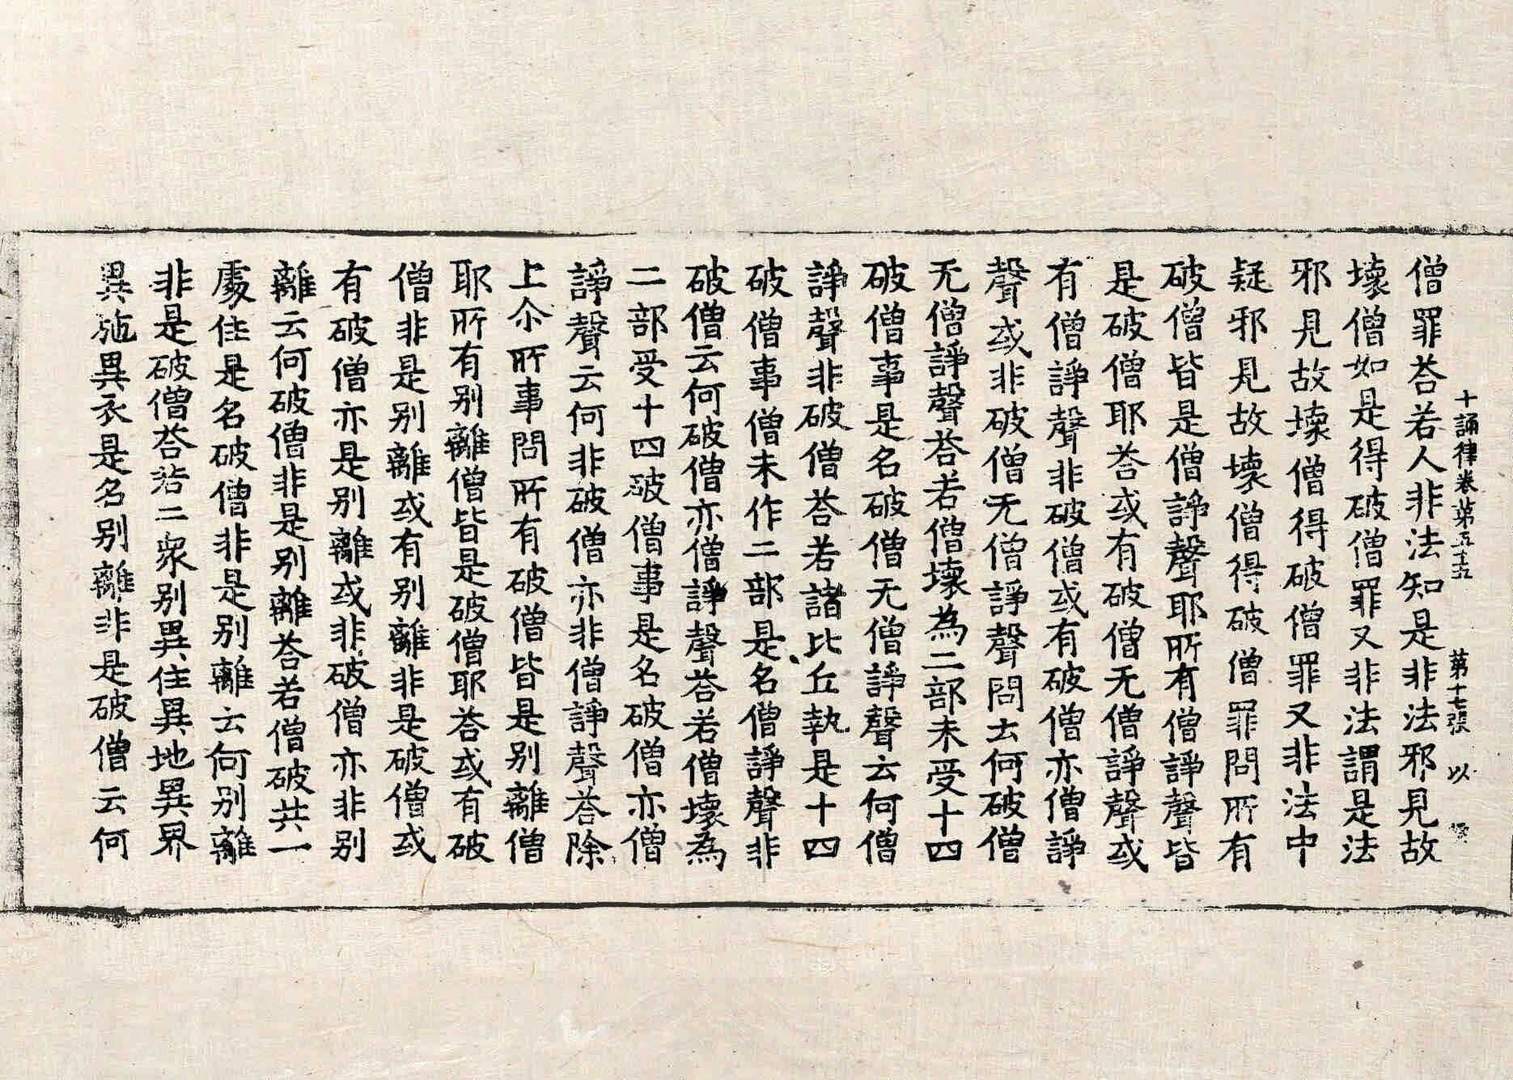 十誦律卷第五十五 第十七張 以
僧罪荅若人非法知是非法邪見故
壞僧如是得破僧罪又非法謂是法
邪見故壞僧得破僧罪又非法中
疑邪見故壞僧得破僧罪問所有
破僧皆是僧諍聲耶所有僧諍聲皆
是破僧耶荅或有破僧无僧諍聲或
有僧諍聲非破僧或有破僧亦僧諍
聲或非破僧无僧諍聲問云何破僧
无僧諍聲荅若僧壞為二部未受十四
破僧事是名破僧无僧諍聲云何僧
諍聲非破僧荅若諸比丘執是十四
破僧事僧未作二部是名僧諍聲非
破僧云何破僧亦僧諍聲荅若僧壞為
二部受十四破僧事是名破僧亦僧
諍聲云何非破僧亦非僧諍聲荅除
上尒所事問所有破僧皆是別離僧
耶所有別離僧皆是破僧耶荅或有破
僧非是別離或有別離非是破僧或
有破僧亦是別離或非破僧亦非別
離云何破僧非是別離荅若僧破共一
處住是名破僧非是別離云何別離
非是破僧荅若二眾別異住異地異界
異施異衣是名別離非是破僧云何